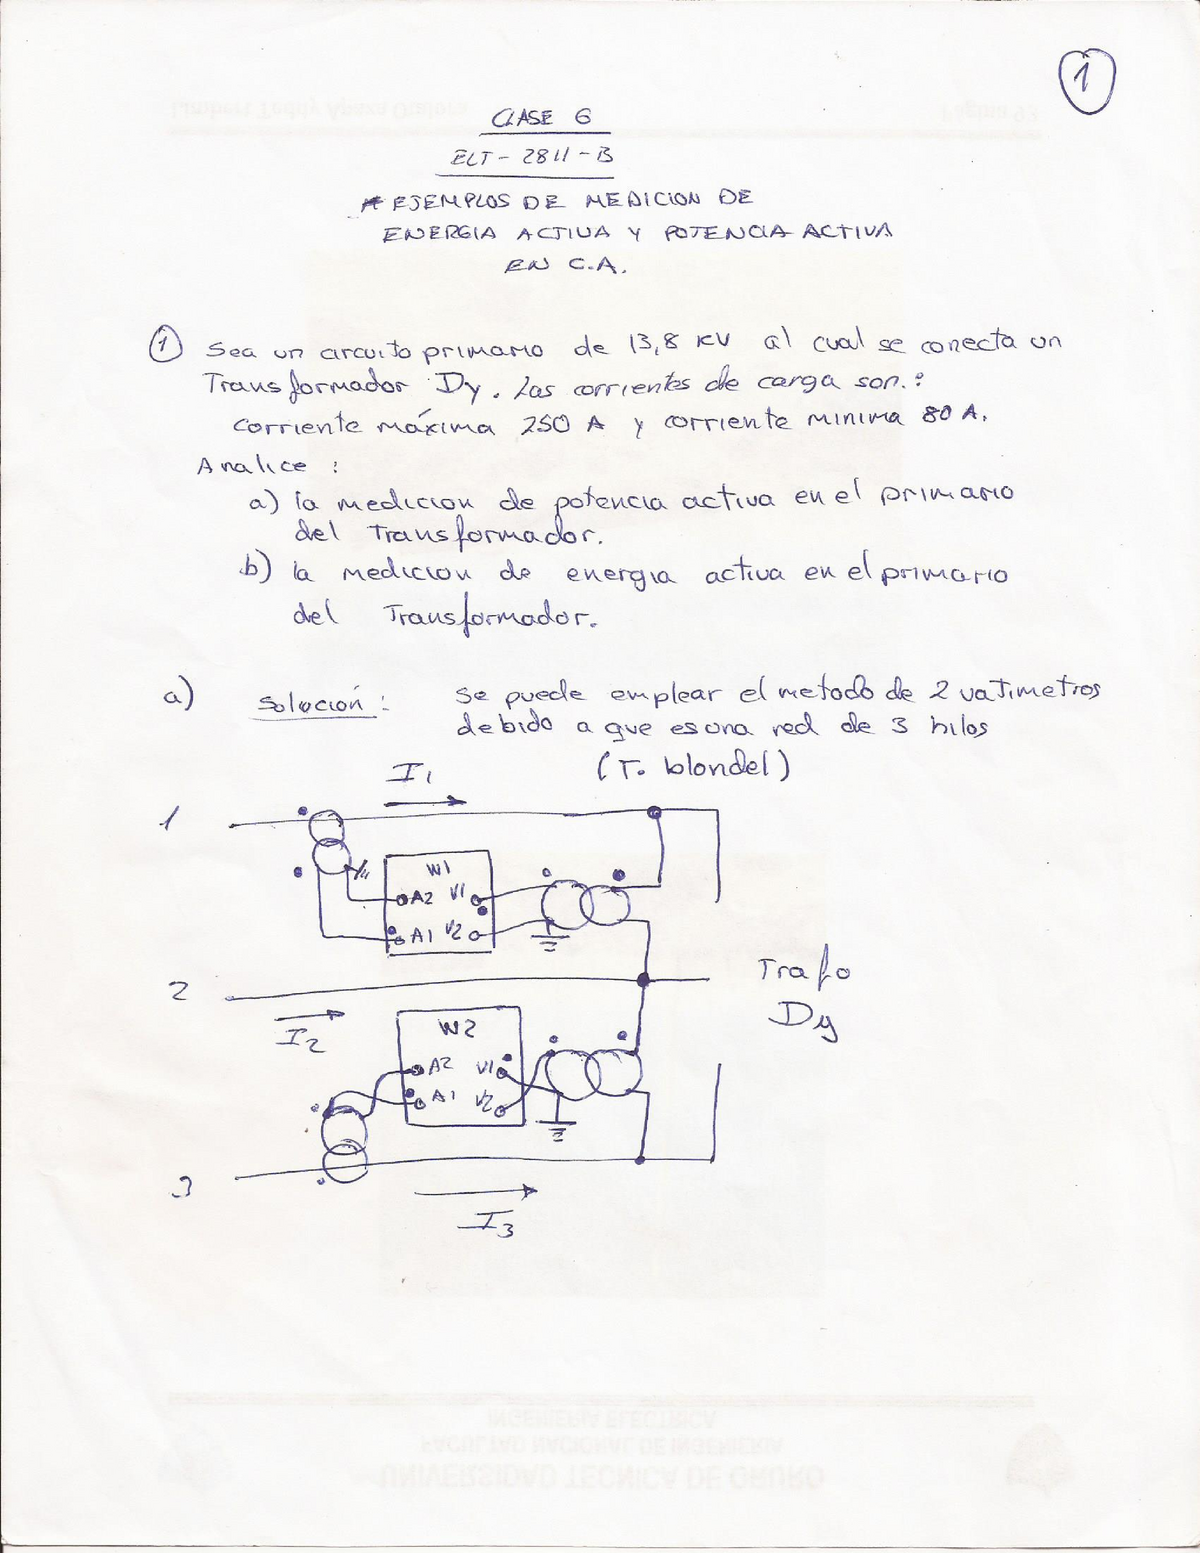 1
CLASE 6
ELT-2811-B
* EJEMPLOS DE MEDICION DE
ENERGIA ACTIVA Y POTENCIA ACTIVA
EN C.A.
1 Sea un circuito primario de 13,8 KV al cual se conecta un
Transformador Dy. Las corrientes de carga son.:
corriente máxima 250 A y corriente minima 80 A.
Analice :
a) la medicion de potencia activa en el primario
del Transformador.
b) la medicion de energia activa en el primario
del Transformador.
a) Solución: Se puede emplear el metodo de 2 vatimetros
debido a que es una red de 3 hilos
(T. blondel)
I1
1
W1
A2 V1
A1 V2
2
Trafo
Dy
I2
W2
A2 V1
A1 V2
3
I3
INGENIERIA ELECTRICA
FACULTAD NACIONAL DE INGENIERIA
UNIVERSIDAD TECNICA DE ORURO